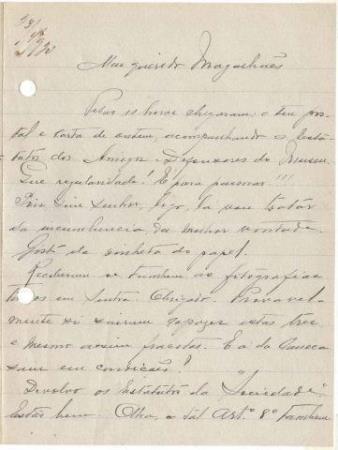 Meu querido Magalhães
Pelas 11 horas chegaram o teu pos-
tal e carta de ontem, acompanhando os Esta-
tutos dos Amigos e Defensores do Museu.
Que regularidade! É para pasmar!!!
Pois sim Senhor, logo, lá vou tratar
da incumbencia da melhor vontade.
Gosto da do papel.
Receberam-se tambem as fotografias
em Sintra. Obrigado. Provavel-
mente só sairam capazes estas tres
e mesmo assim fracotas. E o da Fonseca
sairam em condições?
Devolvo os Estatutos da "Sociedade".
Estão bem. Olha, o tal Artº 8º tambem